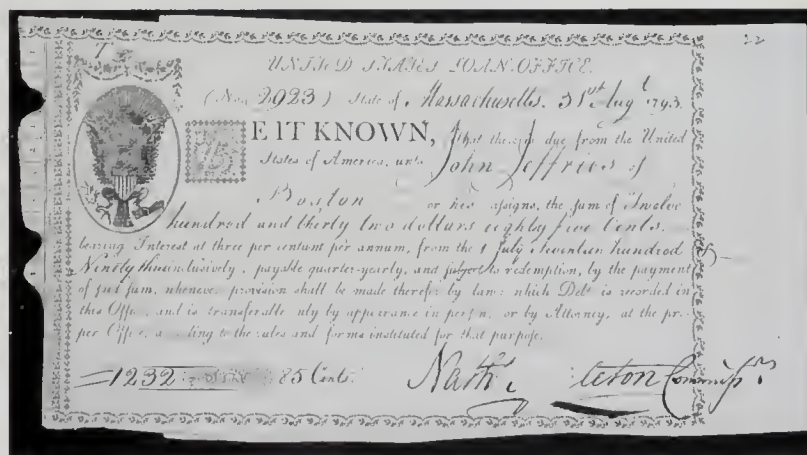 22
UNITED STATES LOAN-OFFICE.
(No. 2923) State of Massachusetts. 31st Augt 1793.
BE IT KNOWN, that there is due from the United
States of America, unto John Jeffries of
Boston or his assigns, the sum of Twelve
hundred and thirty two dollars eighty five Cents.
bearing Interest at three per centum per annum, from the 1 July Seventeen hundred
Ninety three inclusively, payable quarter-yearly, and subject to redemption, by the payment
of said sum, whenever provision shall be made therefor by law: which Debt is recorded in
this Office, and is transferable only by appearance in person, or by Attorney, at the pro-
per Office, according to the rules and forms instituted for that purpose.
1232 85 Cents. Nathl Commissr.